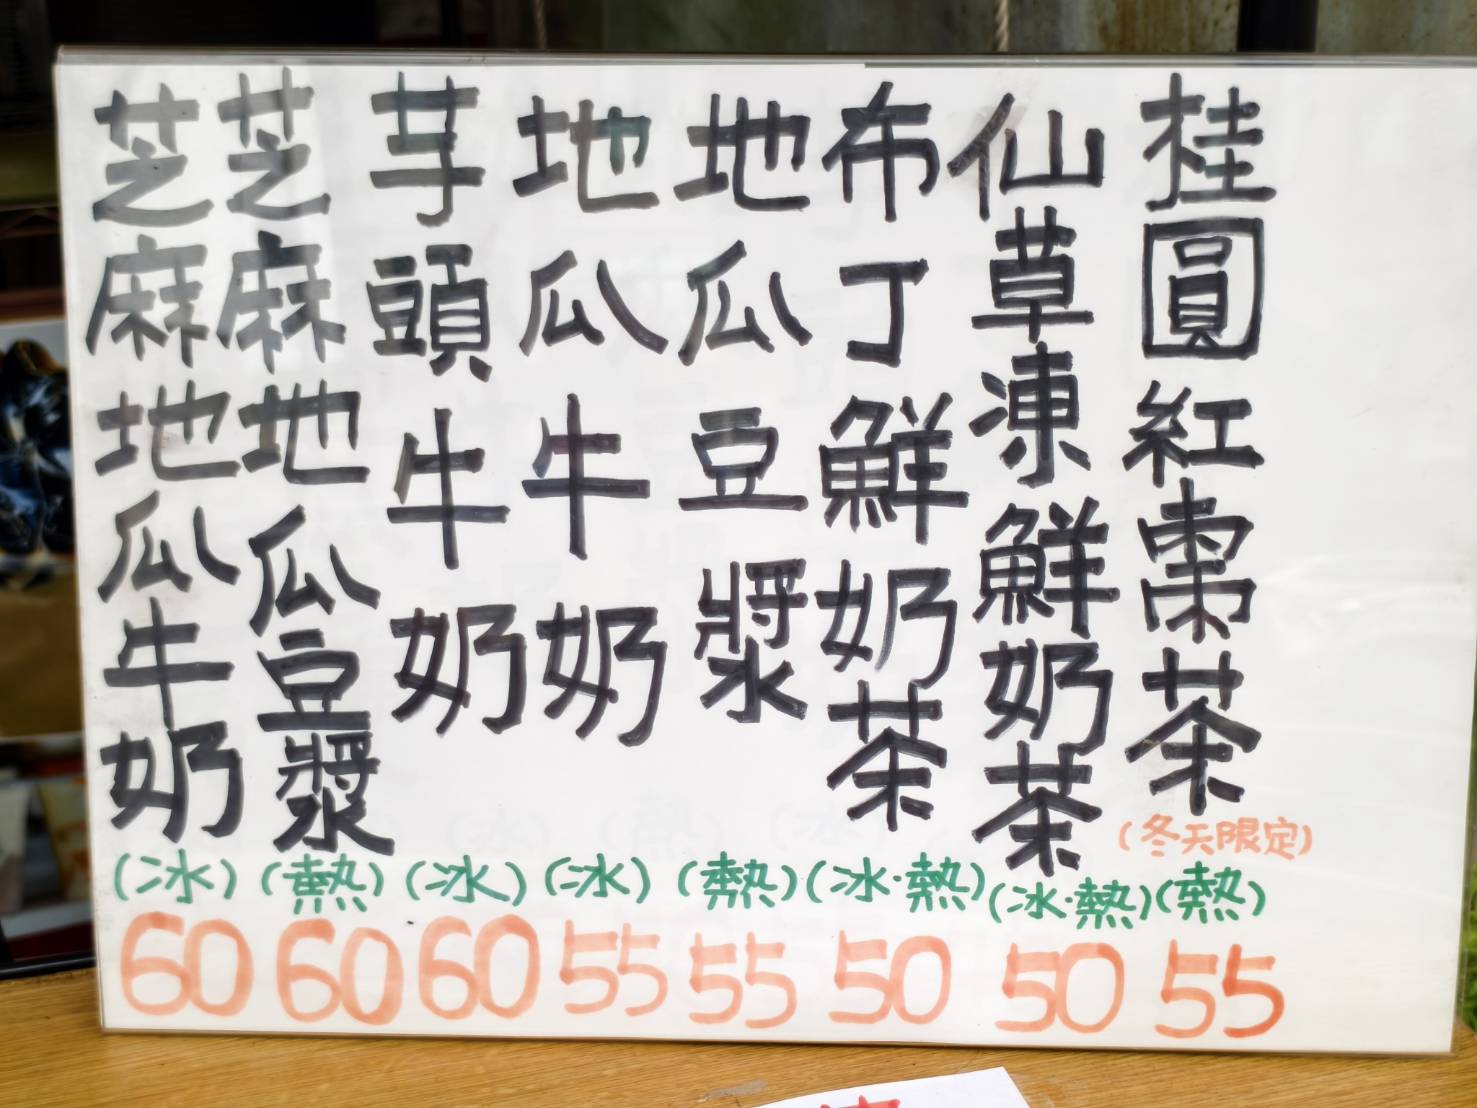 桂圓紅棗茶
(冬天限定)
(熱)
55
仙草凍鮮奶茶
(冰·熱)
50
布丁鮮奶茶
(冰·熱)
50
地瓜豆漿
(熱)
55
地瓜牛奶
(冰)
55
芋頭牛奶
(冰)
60
芝麻地瓜豆漿
(熱)
60
芝麻地瓜牛奶
(冰)
60